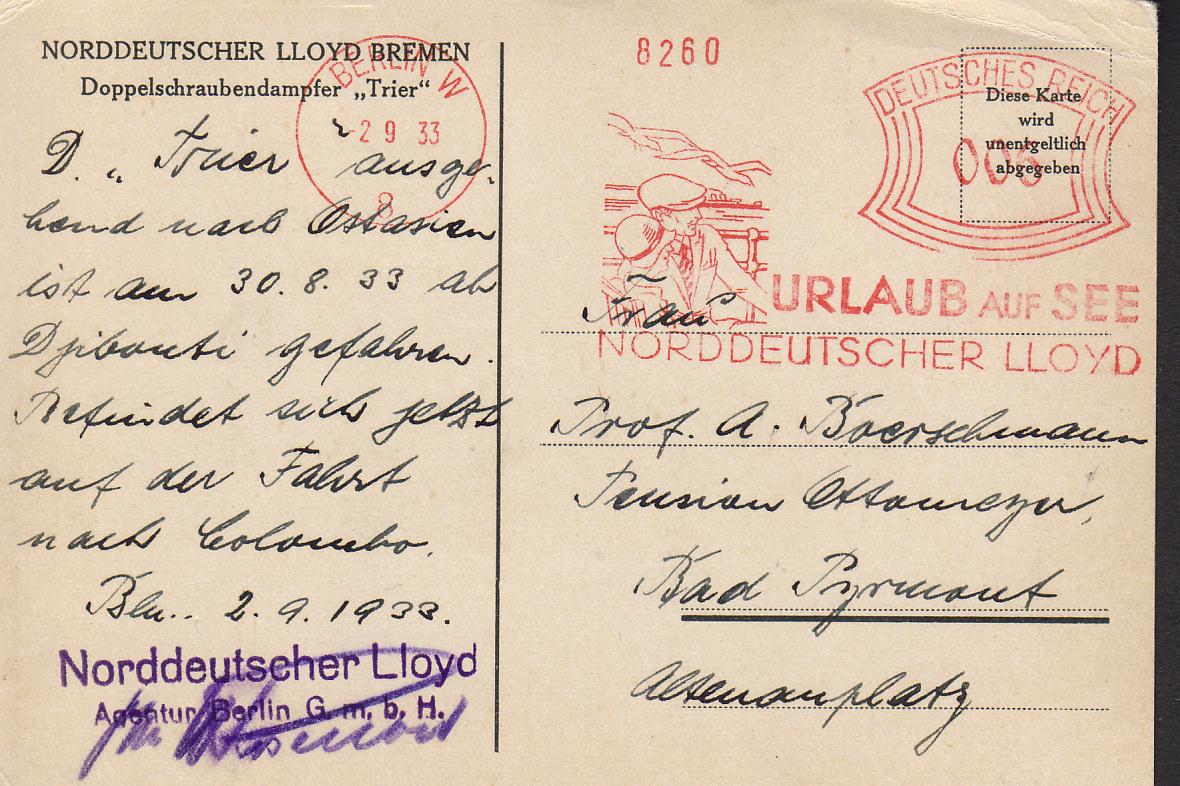 NORDDEUTSCHER LLOYD BREMEN
Doppelschraubendampfer „Trier“
BERLIN W
-2 9 33
8
D. „Trier ausge-
hend nach Ostasien
ist am 30. 8. 33 ab
Djibouti gefahren.
Befindet sich jetzt
auf der Fahrt
nach Colombo.
Bln.. 2. 9. 1933.
Norddeutscher Lloyd
Agentur Berlin G. m. b. H.
8260
DEUTSCHES REICH
006
Diese Karte
wird
unentgeltlich
abgegeben
URLAUB AUF SEE
NORDDEUTSCHER LLOYD
Frau
Prof. A. Boerschmann
Pension Ottomeyer,
Bad Pyrmont
Altenauplatz